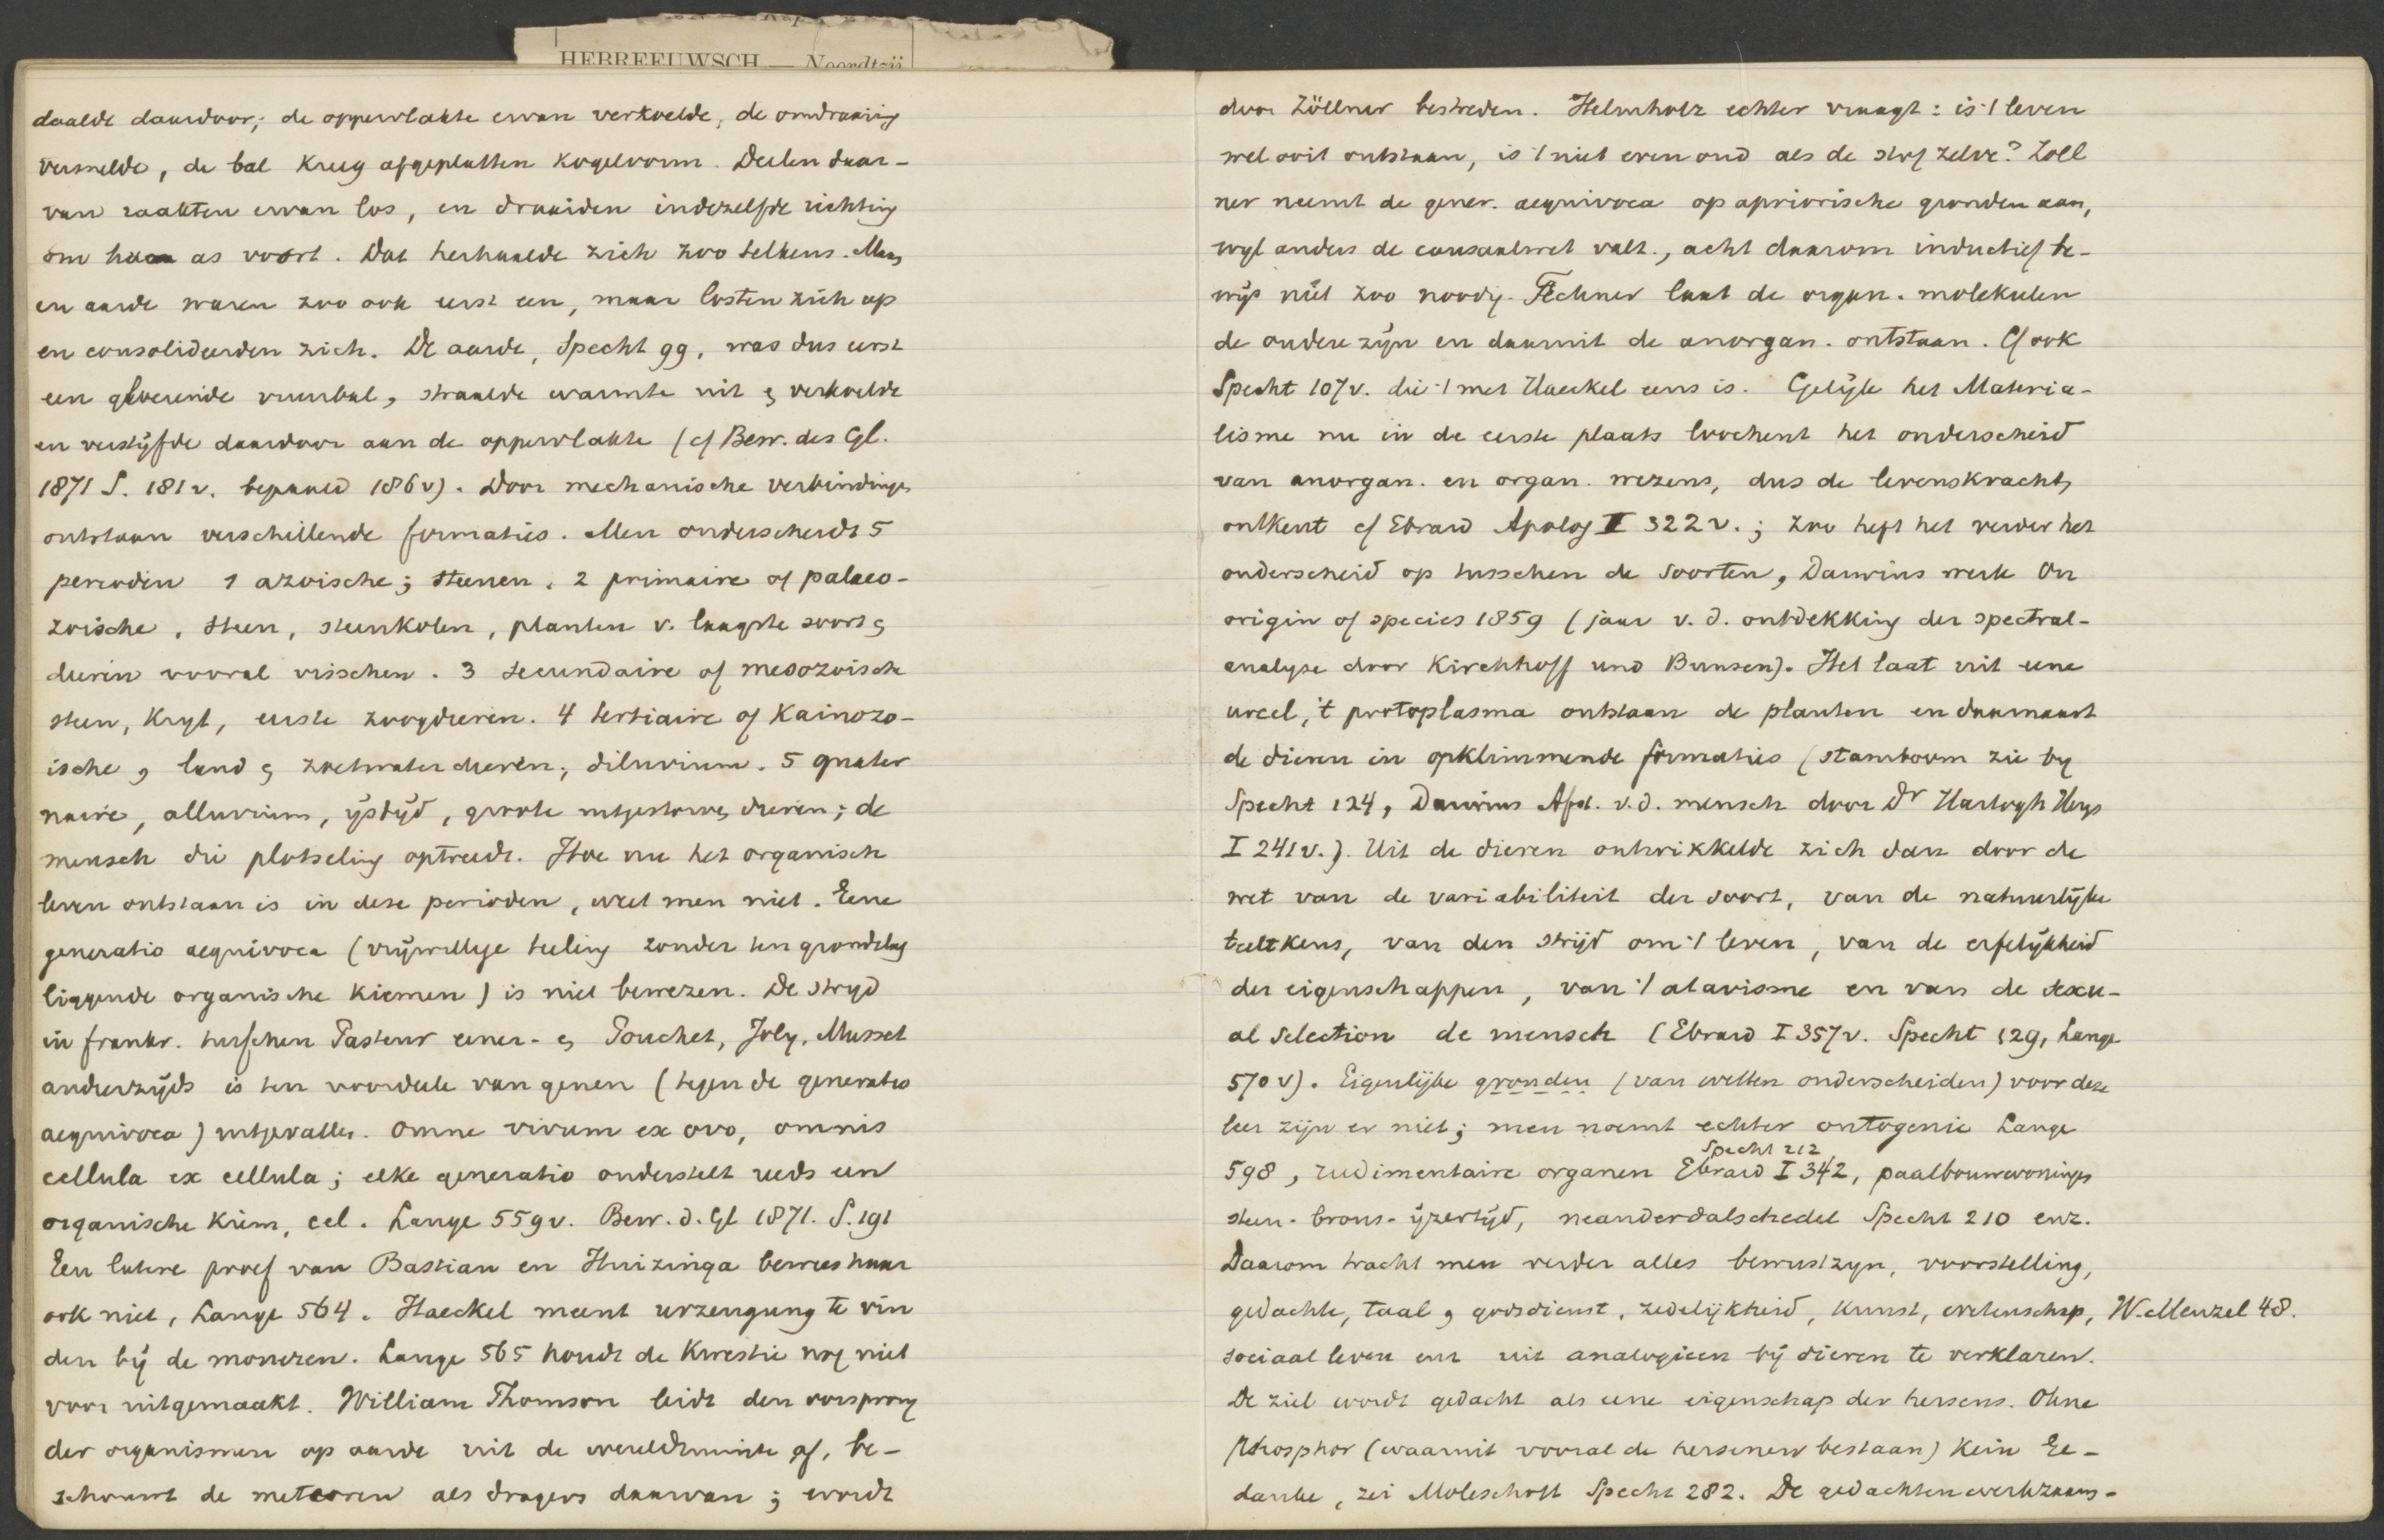 HEBREEUWSCH — Noordtzij
daalde daardoor; de oppervlakte ervan verkoelde, de omdraaiing
versnelde, de bal kreeg afgeplatten kogelvorm. Deelen daar-
van raakten ervan los, en draaiden in dezelfde richting
om haar as voort. Dat herhaalde zich zoo telkens. Maan
en aarde waren zoo ook eerst een, maar losten zich op
en consolideerden zich. De aarde, Specht 99, was dus eerst
een gloeiende vuurbal, straalde warmte uit & verkoelde
en verstijfde daardoor aan de oppervlakte (cf Bew. des Gl.
1871 S. 181v. bepaald 186v). Door mechanische verbindingen
ontstaan verschillende formaties. Men onderscheidt 5
perioden 1 azoische; steenen. 2 primaire of palaeo-
zoische, steen, steenkolen, planten v. laagste soort &
dieren vooral visschen. 3 secundaire of mesozoische
steen, kryt, eerste zoogdieren. 4 tertiaire of kainozo-
ische, land & zoetwater dieren, diluvium. 5 quater
naire, alluvium, ystyd, groote uitgestorven dieren; de
mensch die plotseling optreedt. Hoe nu het organisch
leven ontstaan is in deze perioden, weet men niet. Eene
generatio aequivoca (vrijwillige teeling zonder ten grondslag
liggende organische kiemen) is niet bewezen. De stryd
in frankr. tusschen Pasteur eener- en Pouchet, Joly, Musset
anderzijds is ten voordeele van genen (tegen de generatio
aequivoca) uitgevallen. Omne vivum ex ovo, omnis
cellula ex cellula; elke generatio onderstelt reeds een
organische kiem, cel. Lange 559v. Bew. d. Gl 1871. S. 191
Een latere proef van Bastian en Huizinga bewees haar
ook niet, Lange 564. Haeckel meent urzeugung te vin
den bij de moneren. Lange 565 houdt de kwestie nog niet
voor uitgemaakt. William Thomson leidt den oorsprong
der organismen op aarde uit de wereldruimte af, be-
schouwt de meteoren als dragers daarvan; wordt
door Zöllner bestreden. Helmholz echter vraagt: is 't leven
wel ooit ontstaan, is 't niet even oud als de stof zelve? Zöll
ner neemt de gener. aequivoca op apriorische gronden aan,
wyl anders de causaalwet valt., acht daarom inductief be-
wijs niet zoo noodig. Fechner laat de organ. molekulen
de oudere zijn en daaruit de anorgan. ontstaan. Cf ook
Specht 107v. die 't met Haeckel eens is. Gelijk het Materia-
lisme nu in de eerste plaats loochent het onderscheid
van anorgan. en organ. wezens, dus de levenskracht,
ontkent cf Ebrard Apolog I 322v.; zoo heft het verder het
onderscheid op tusschen de soorten, Darwins werk On
origin of species 1859 (jaar v. d. ontdekking der spectral-
analyse door Kirchhoff und Bunsen). Het laat uit eene
urcel, 't protoplasma ontstaan de planten en daarnaast
de dieren in opklimmende formaties (stamboom zie by
Specht 124, Darwins Afst. v. d. mensch door Dr Hartogh Heys
I 241v.). Uit de dieren ontwikkelde zich dan door de
wet van de variabiliteit der soort, van de natuurlijke
teeltkeus, van den strijd om 't leven, van de erfelijkheid
der eigenschappen, van 't atavisme en van de sexu-
al selection de mensch (Ebrard I 357v. Specht 129, Lange
570v). Eigenlijke gronden (van wetten onderscheiden) voor deze
leer zijn er niet; men noemt echter ontogenie Lange
Specht 212
598, rudimentaire organen Ebrard I 342, paalbouwwoningen
steen- brons- ijzertijd, neanderdalschedel Specht 210 enz.
Daarom tracht men verder alles bewustzyn, voorstelling,
gedachte, taal, godsdienst, zedelijkheid, kunst, wetenschap, W. Menzel 48.
sociaal leven enz uit analogieen bij dieren te verklaren.
De ziel wordt gedacht als eene eigenschap der hersens. Ohne
Phosphor (waaruit vooral de hersenen bestaan) kein Ge-
danke, zei Moleschott Specht 282. De gedachtenwerkzaam-